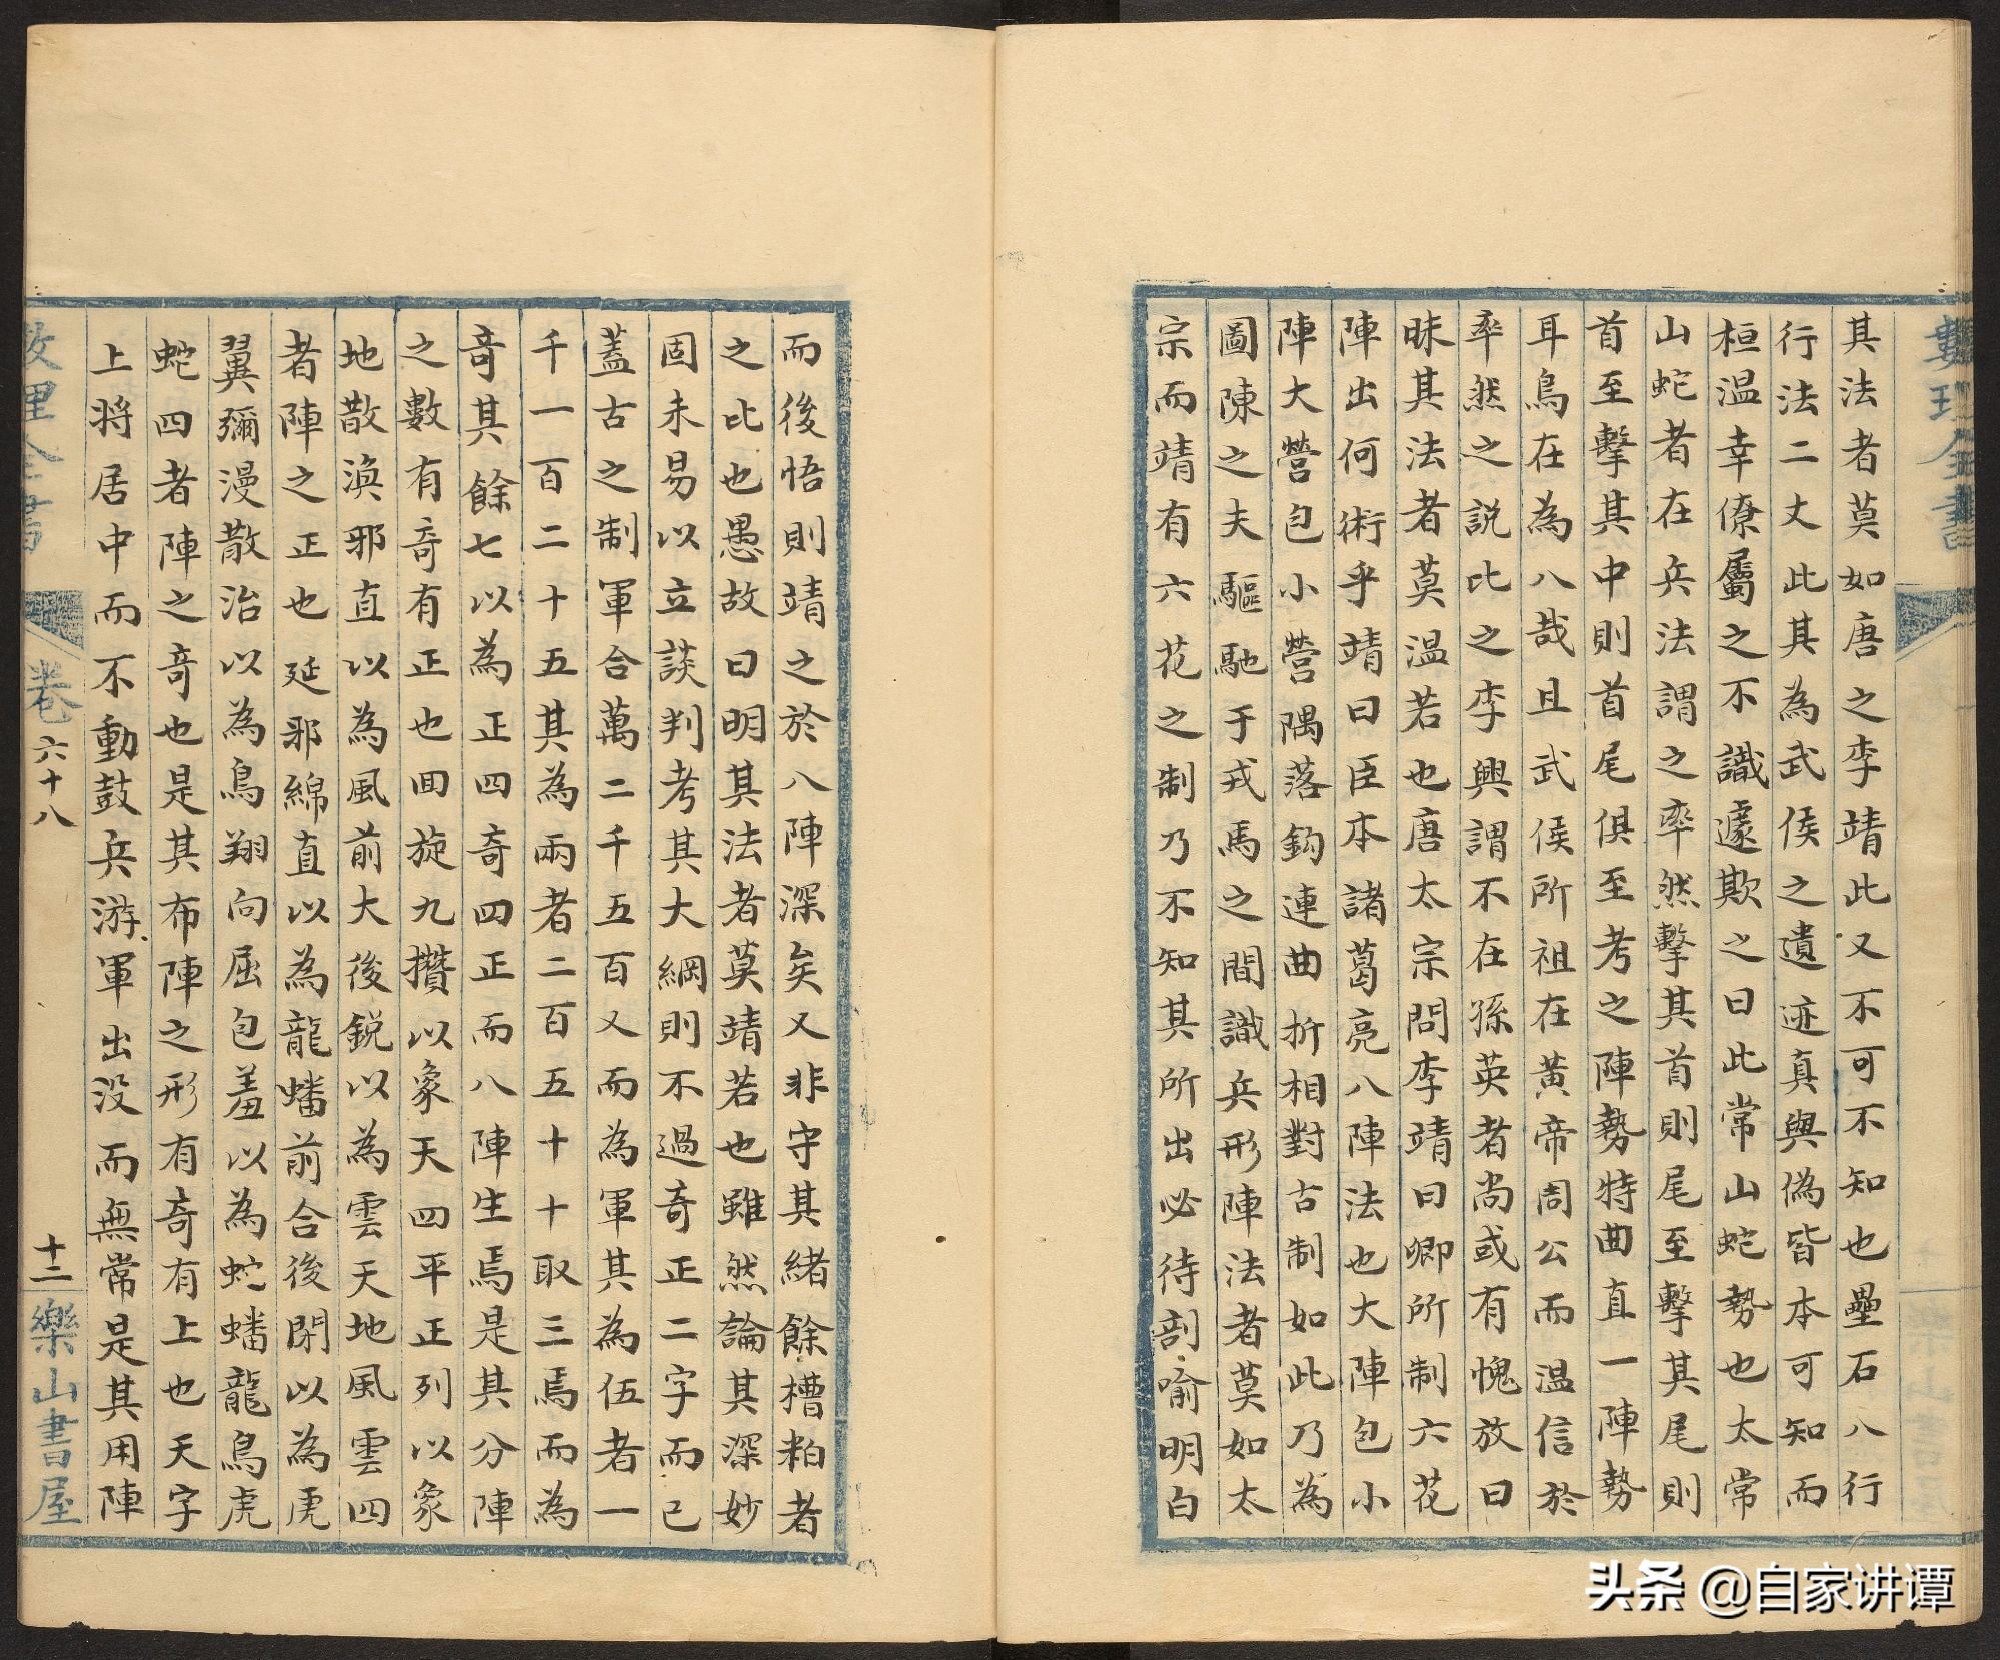 數理全書
其法者莫如唐之李靖此又不可不知也壘石八行
行法二丈此其為武侯之遺迹真與偽皆本可知而
桓温幸僚屬之不識遽欺之曰此常山蛇勢也太常
山蛇者在兵法謂之率然擊其首則尾至擊其尾則
首至擊其中則首尾俱至考之陣勢特曲直一陣勢
耳鳥在為八哉且武侯所祖在黃帝周公而温信於
率然之説比之李興謂不在孫英者尚或有愧放曰
昧其法者莫温若也唐太宗問李靖曰卿所制六花
陣出何術乎靖曰臣本諸葛亮八陣法也大陣包小
陣大營包小營隅落鈎連曲折相對古制如此乃為
圖陳之夫驅馳于戎馬之間識兵形陣法者莫如太
宗而靖有六花之制乃不知其所出必待剖喻明白
而後悟則靖之於八陣深矣又非守其緒餘槽粕者
之比也愚故曰明其法者莫靖若也雖然論其深妙
固未易以立談判考其大綱則不過奇正二字而已
蓋古之制軍合萬二千五百又而為軍其為伍者一
千一百二十五其為兩者二百五十十取三焉而為
奇其餘七以為正四奇四正而八陣生焉是其分陣
之數有奇有正也回旋九攢以象天四平正列以象
地散渙邪直以為風前大後鋭以為雲天地風雲四
者陣之正也延邪綿直以為龍蟠前合後閉以為虎
翼彌漫散治以為鳥翔向屈包羞以為蛇蟠龍鳥虎
蛇四者陣之奇也是其布陣之形有奇有上也天字
上將居中而不動鼓兵游軍出没而無常是其用陣
數理全書 卷六十八 十二 樂山書屋
头条 @自家讲谭